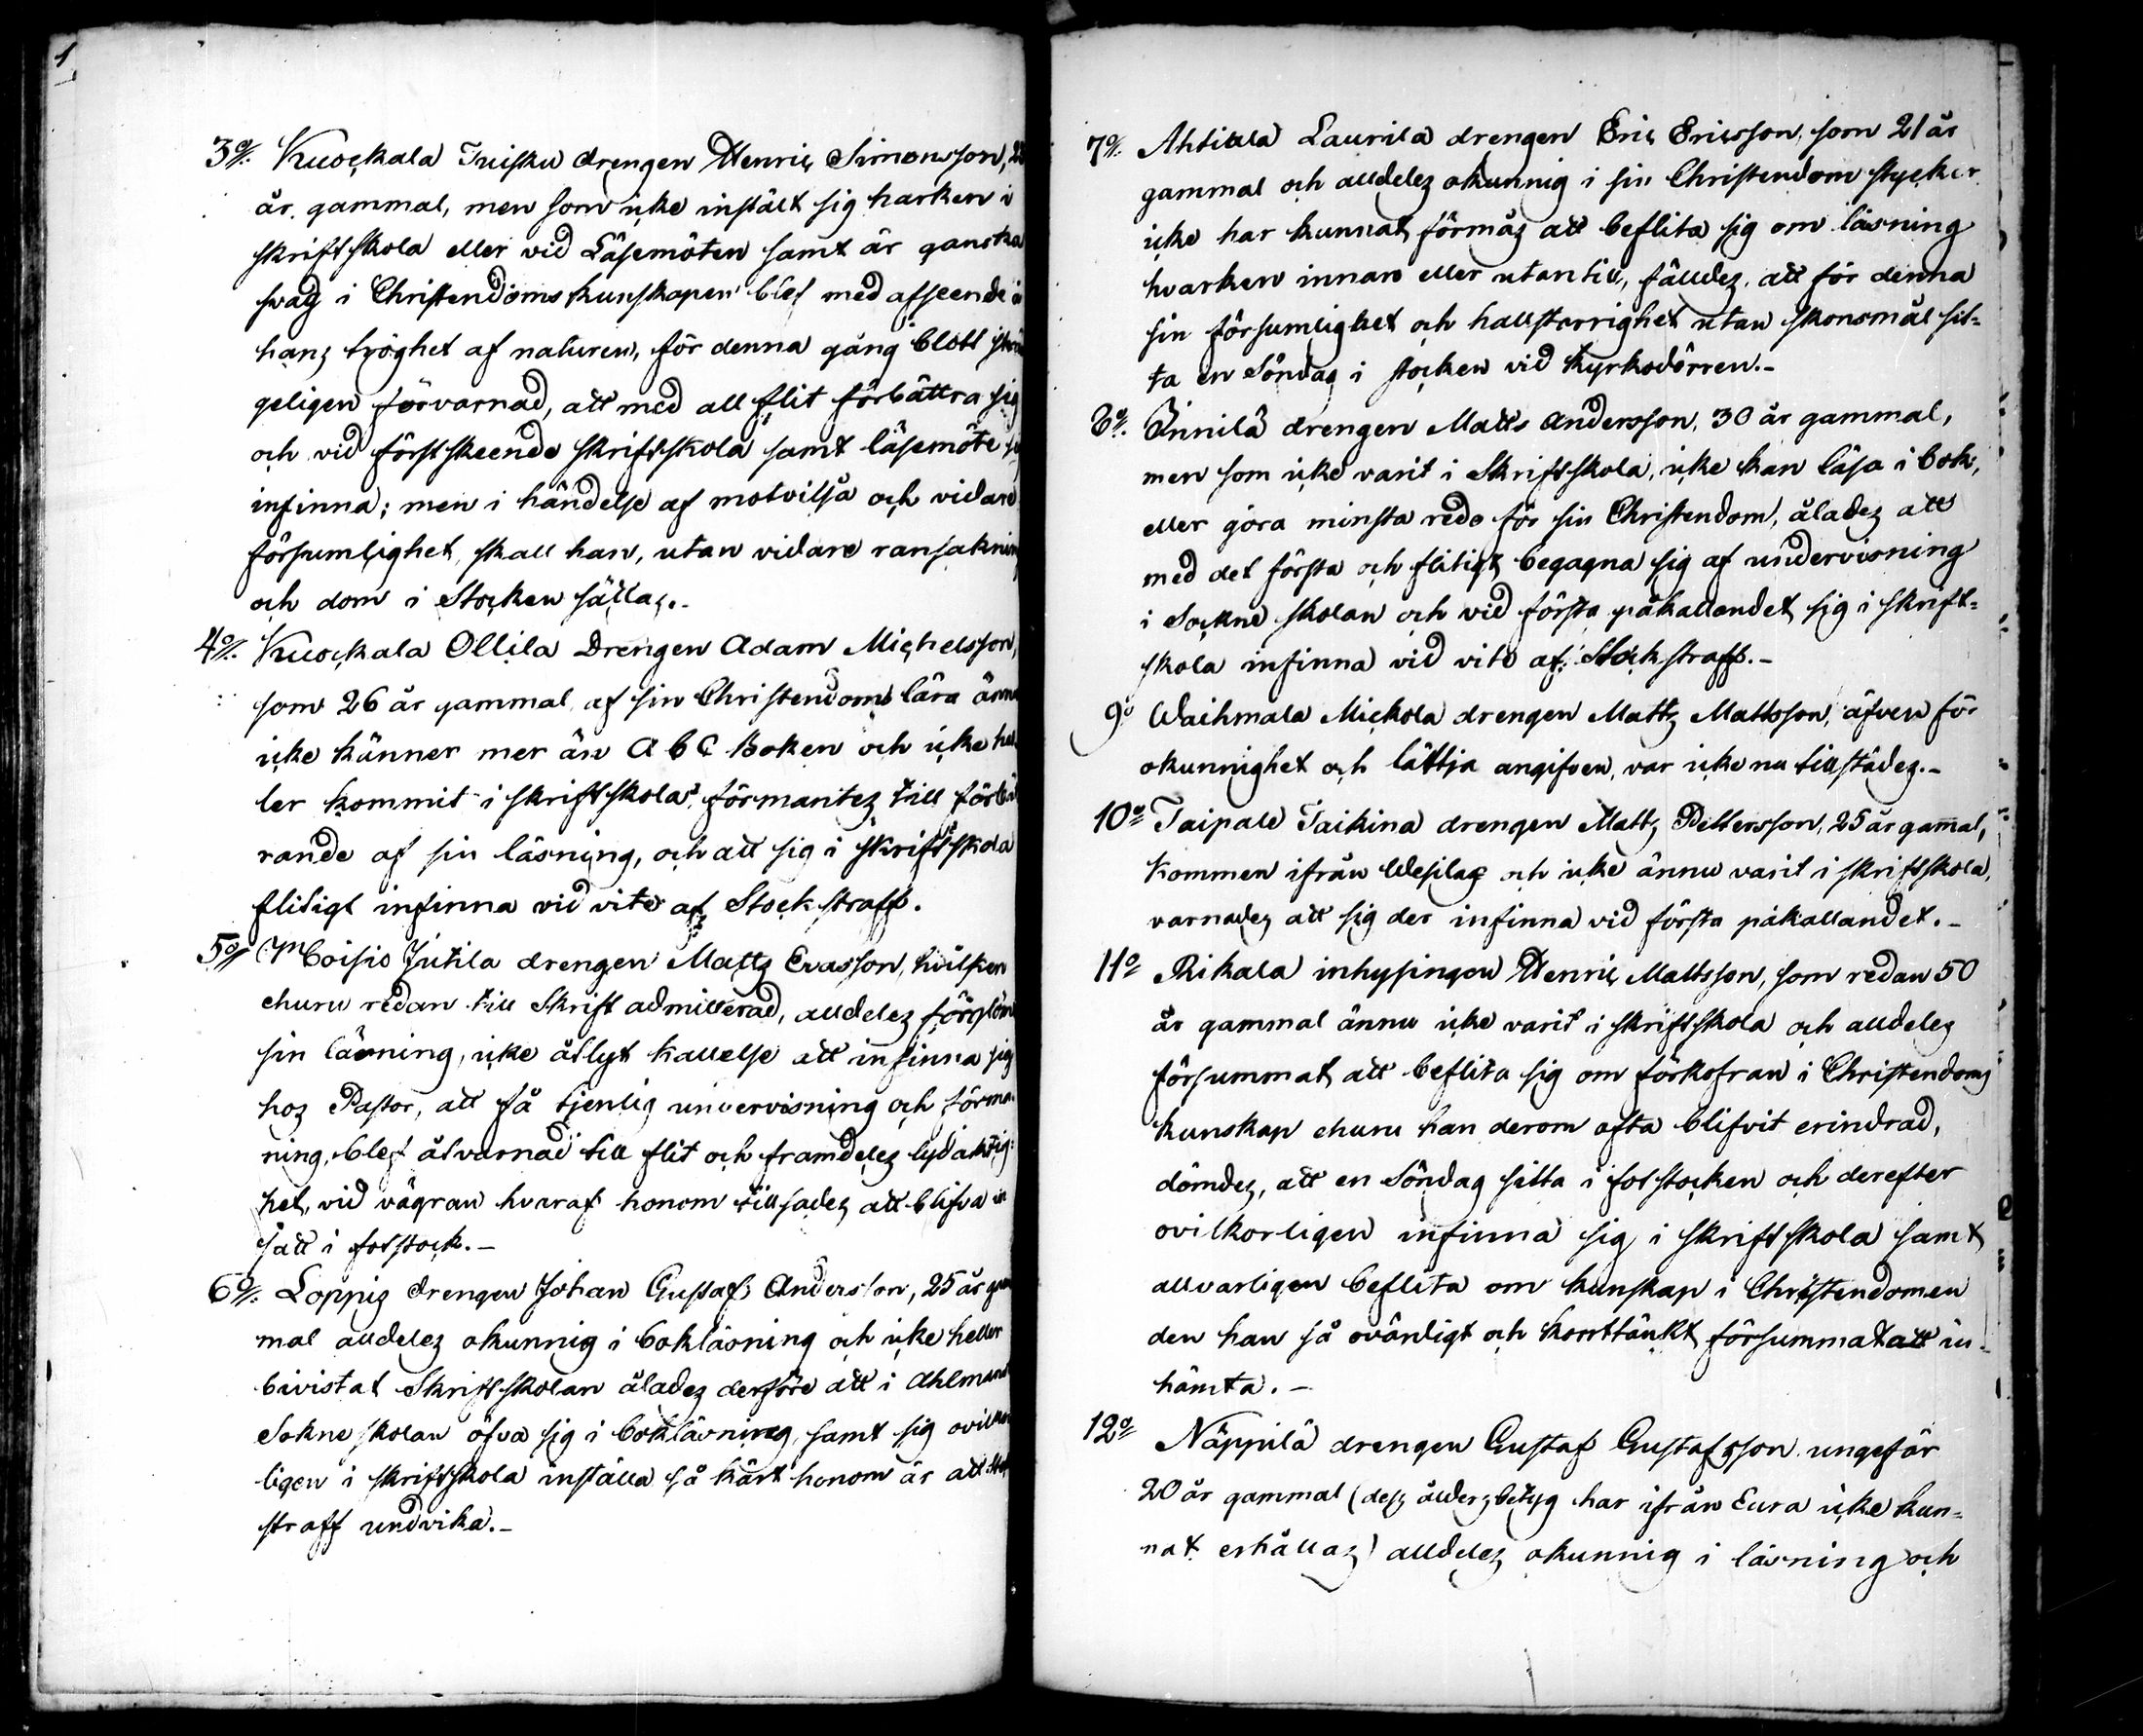 1
3:o Kuockala Tuisku drengen Henric Simonsson,
år gammal, men som icke instält sig harken i
skriftskola eller vid Läsemöten samt är ganska
svag i Christendoms kunskapen blef med afseende å
hans tröghet af naturen, för denna gång blott
geligen förvarnad, att med all flit förbättra sig
och vid förstskeende skriftskola samt läsemöte
infinna; men i händelse af motvilja och vidare
försumlighet, skall han, utan vidare ransakning
och dom i Stocken sättas.-
4:o Kuockala Ollila Drengen Adam Michelsson,
som 26 år gammal af sin Christendoms lära
icke känner mer än ABC Boken och icke hel
ler kommit i skriftskola, förmantes till förbätt
rande af sin läsning, och att sig i skriftskola
flitigt infinna vid vite af Stockstraff.
5:o Jutila drengen Matts Ersson, hvilken
ehuru redan till Skrift admitterad, alldeles förglömt
sin läsning, icke åtlyt kallelse att infinna sig
hos Pastor, att få tjenlig undervisning och förma
ning, blef åtvarnad till flit och framdeles lydaktig-
het, vid vägran hvaraf honom tillsades att blifva in
satt i fotstock.-
6:o Loppis drengen Johan Gustaf Andersson, 25 år gam
mal alldeles okunnig i bokläsning och icke heller
bivistat Skriftskolan ålades derföre att i
Sokne skolan öfva sig i bokläsning, samt sig ovilkor
ligen i skriftskola inställa så kärt honom är att Stock
straff undvika.-
7:o Ahtiala Laurila drengen Eric Ericsson, som 21 år
gammal och alldeles okunnig i sin Christendom stycker
icke har kunnat förmås att beflita sig om läsning
hvarken innan eller utantill, fälldes, att för denna
sin försumlighet och hallstarrighet utan skonsmål sit=
ta en Söndag i stocken vid Kyrkodörren.-
8:o Önnilä drengen Matts Andersson, 30 år gammal,
men som icke varit i Skriftskola, icke kan läsa i bok,
eller göra minsta redo för sin Christendom, ålades att
med det första och flitigt begagna sig af undervisning
i Sockne skolan och vid första påkallandet sig i skrift=
skola infinna vid vite af Stockstraff.-
9:o Waihmala Mickola drengen Matts Mattsson, äfven för
okunnighet och lättja angifven, var icke nu tillstädes.-
10:o Taipale Taikina drengen Matts Pettersson, 25 år gamal,
kommen ifrån Wesilax och icke ännu varit i skriftskola,
varnades att sig der infinna vid första påkallandet.-
11:o Rikala inhysingen Henric Mattsson, som redan 50
år gammal ännu icke varit i skriftskola och alldeles
försummat att beflita sig om förkofran i Christendoms
kunskap ehuru han derom ofta blifvit erindrad,
dömdes, att en Söndag sitta i fotstocken och derefter
ovilkorligen infinna sig i skriftskola samt
allvarligen beflita om kunskap i Christendomen
den han så ovärdigt och korttänkt försummat att in-
hämta.-
12:o Näppilä drengen Gustaf Gustafsson ungefär
20 år gammal (dess ålders betyg har ifrån Eura icke kun=
nat erhållas) alldeles okunnig i läsning och